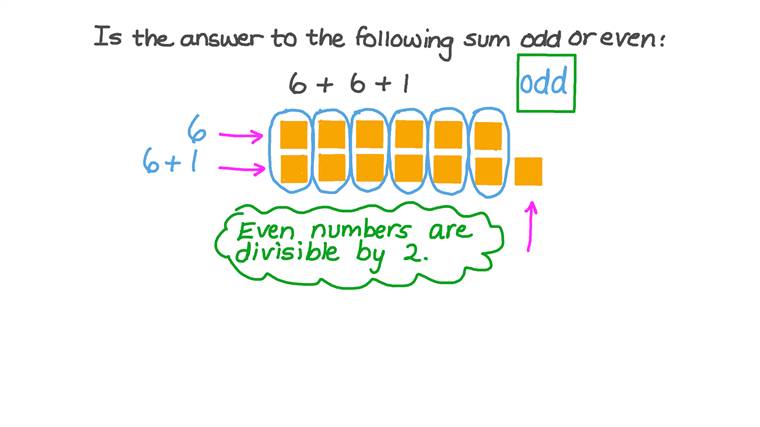 Is the answer to the following sum odd or even:
6 + 6 + 1
odd
6
6 + 1
Even numbers are
divisible by 2.